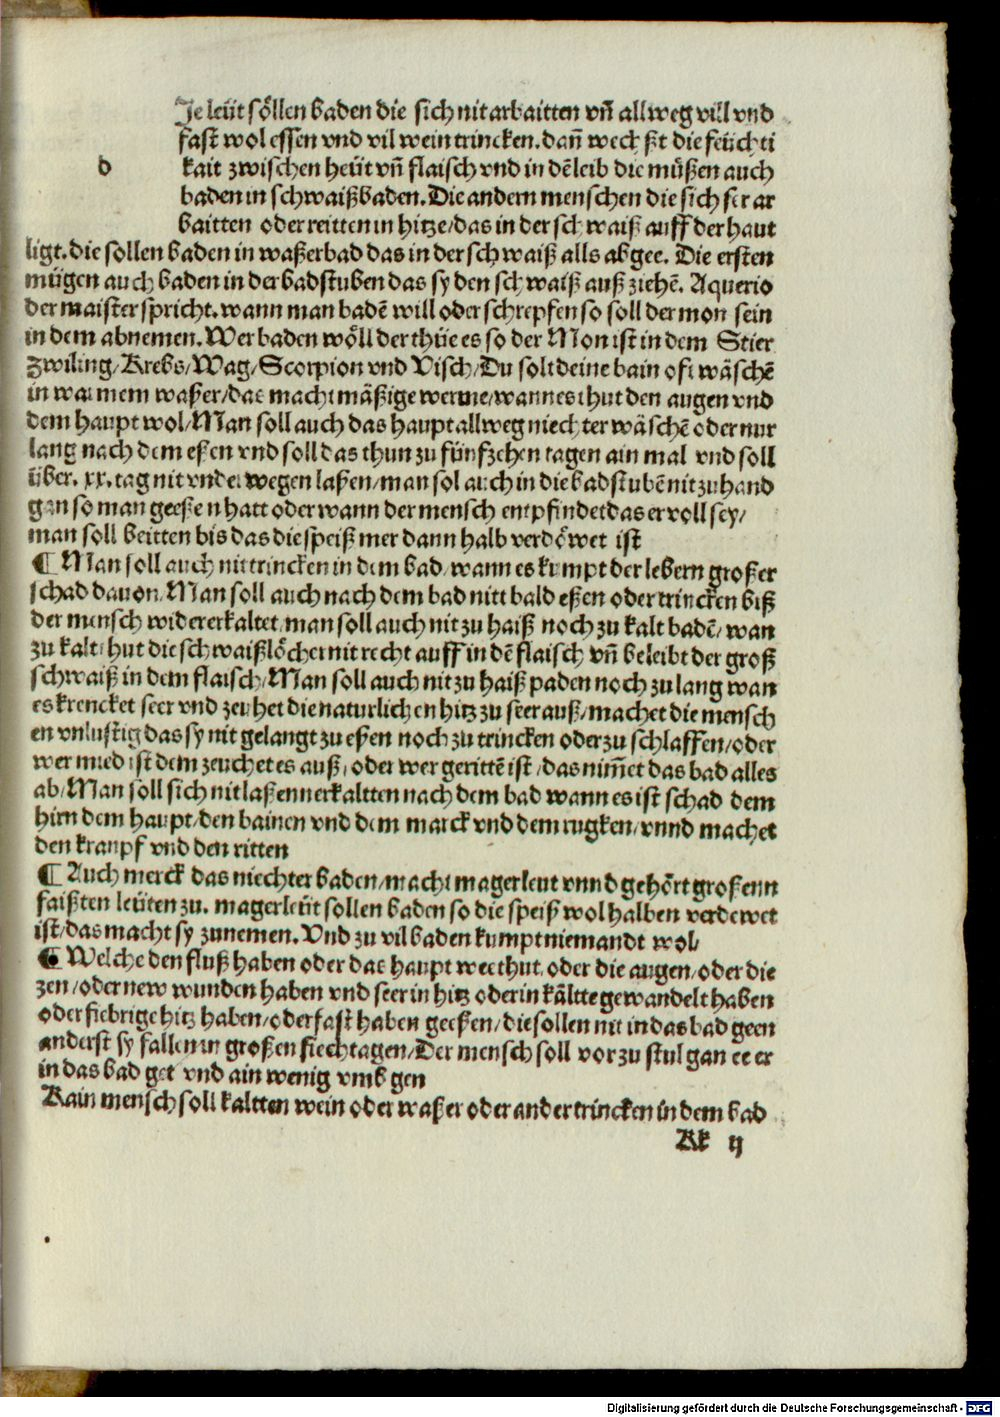 Je leüt söllen baden die sich nit arbaitten vñ allweg vill vnd
fast wol essen vnd vil wein trincken. dañ wechßt die feüchti
d
kait zwischen heüt vñ flaisch vnd in dē leib die müßen auch
baden in schwaißbaden. Die andern menschen die sich ser ar
baitten oder reitten in hitze/das in der schwaiß auff der haut
ligt. die sollen baden in waßerbad das in der schwaiß alls ab gee. Die ersten
mügen auch baden in der badstuben das sy den schwaiß auß ziehē. Aquerio
der maister spricht. wann man badē will oder schrepfen so soll der mon sein
in dem abnemen. Wer baden wöll der thüe es so der Mon ist in dem Stier
Zwiling/Krebs/Wag/Scorpion vnd Visch/Du solt deine bain oft wäschē
in warmem waßer/das macht mäßige werme/wann es thut den augen vnd
dem haupt wol/Man soll auch das haupt allweg niechter wäschē oder nur
lang nach dem eßen vnd soll das thun zu fünfzehen tagen ain mal vnd soll
über. xx. tag nit vnderwegen laßen/man sol auch in die badstubē nit zuhand
gan so man geeßen hatt oder wann der mensch entpfindet das er voll sey/
man soll beitten bis das die speiß mer dann halb verdöwet ist
¶ Man soll auch nit trincken in dem bad/wann es kumpt der lebern großer
schad dauon/Man soll auch nach dem bad nitt bald eßen oder trincken biß
der mensch wider erkaltet/man soll auch nit zu haiß noch zu kalt badē/wan
zu kalt thut die schwaißlöcher nit recht auff in dē flaisch vñ beleibt der groß
schwaiß in dem flaisch/Man soll auch nit zu haiß paden noch zu lang wan
es krencket seer vnd zeuhet die naturlichen hitz zu seer auß/machet die mensch
en vnlustig das sy nit gelangt zu eßen noch zu trincken oder zu schlaffen/oder
wer mied ist dem zeuchet es auß/oder wer gerittē ist/das nim̄et das bad alles
ab/Man soll sich nit laßenn erkaltten nach dem bad wann es ist schad dem
hirn dem haupt/den bainen vnd dem marck vnd dem rugken/vnnd machet
den krampf vnd den ritten
¶ Auch merck das niechter baden/macht mager leut vnnd gehört großenn
faißten leüten zu. mager leüt sollen baden so die speiß wol halben verdewet
ist/das macht sy zunemen. Vnd zu vil baden kumpt niemandt wol/
¶ Welche den fluß haben oder das haupt wee thut/oder die augen/oder die
zen/oder new wunden haben vnd seer in hitz oder in kältte gewandelt haben
oder fiebrige hitz haben/oder fast haben geeßen/die sollen nit in das bad geen
anderst sy fallen in großen siechtagen/Der mensch soll vor zu stul gan ee er
in das bad get vnd ain wenig vmb gen
Kain mensch soll kaltten wein oder waßer oder ander trincken in dem bad
Kk ij
Digitalisierung gefördert durch die Deutsche Forschungsgemeinschaft - DFG